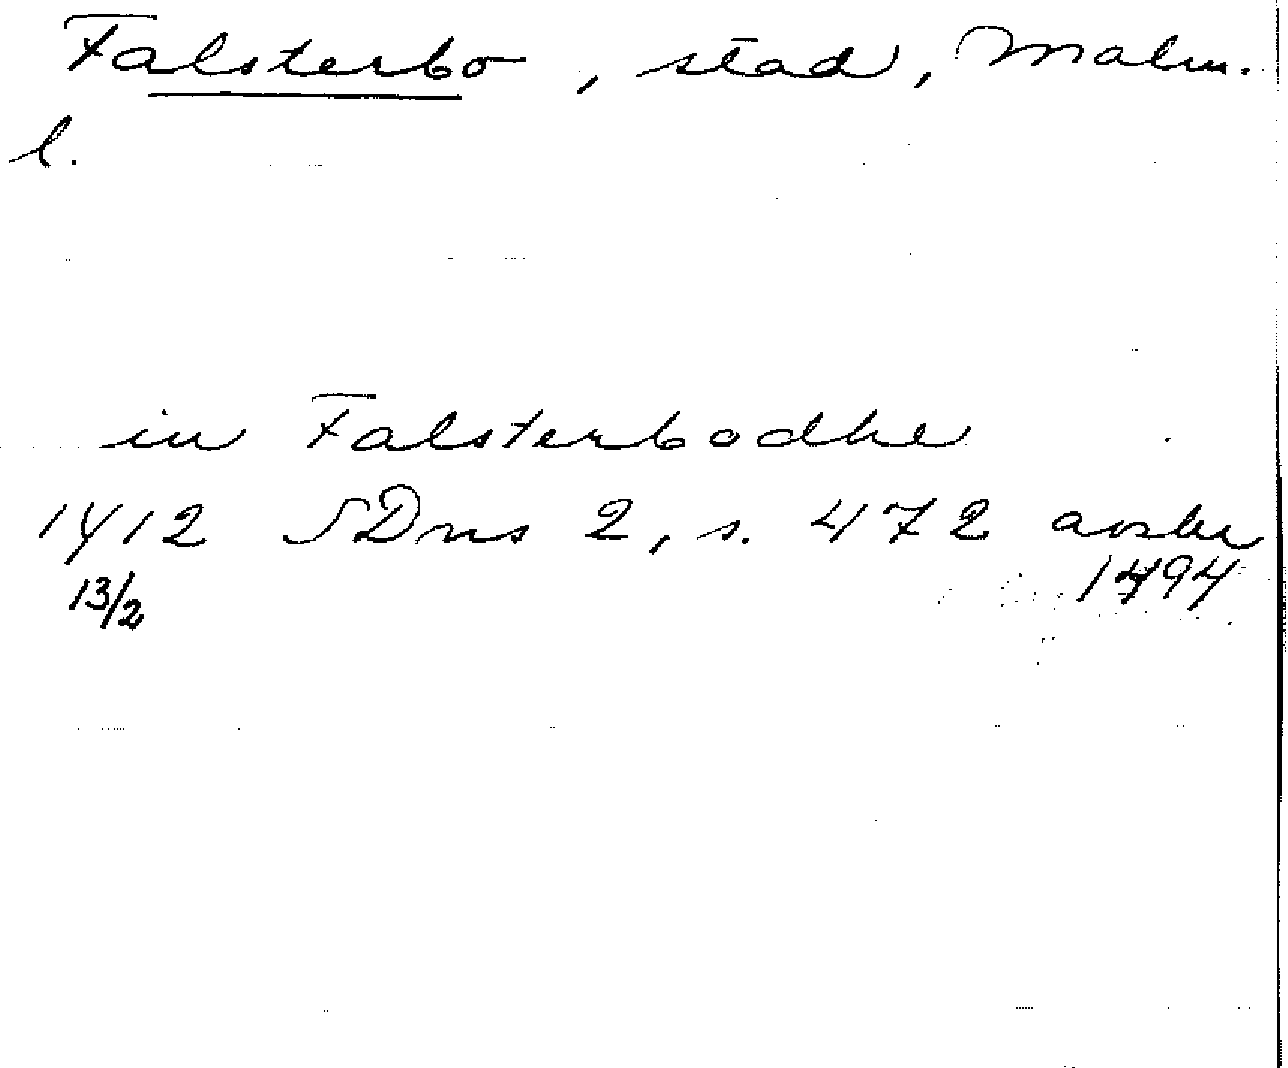 Falsterbo, stad, Malm.
l.
in Falsterbodhe
1412 SDns 2, s. 472 avskr
13/2 1494